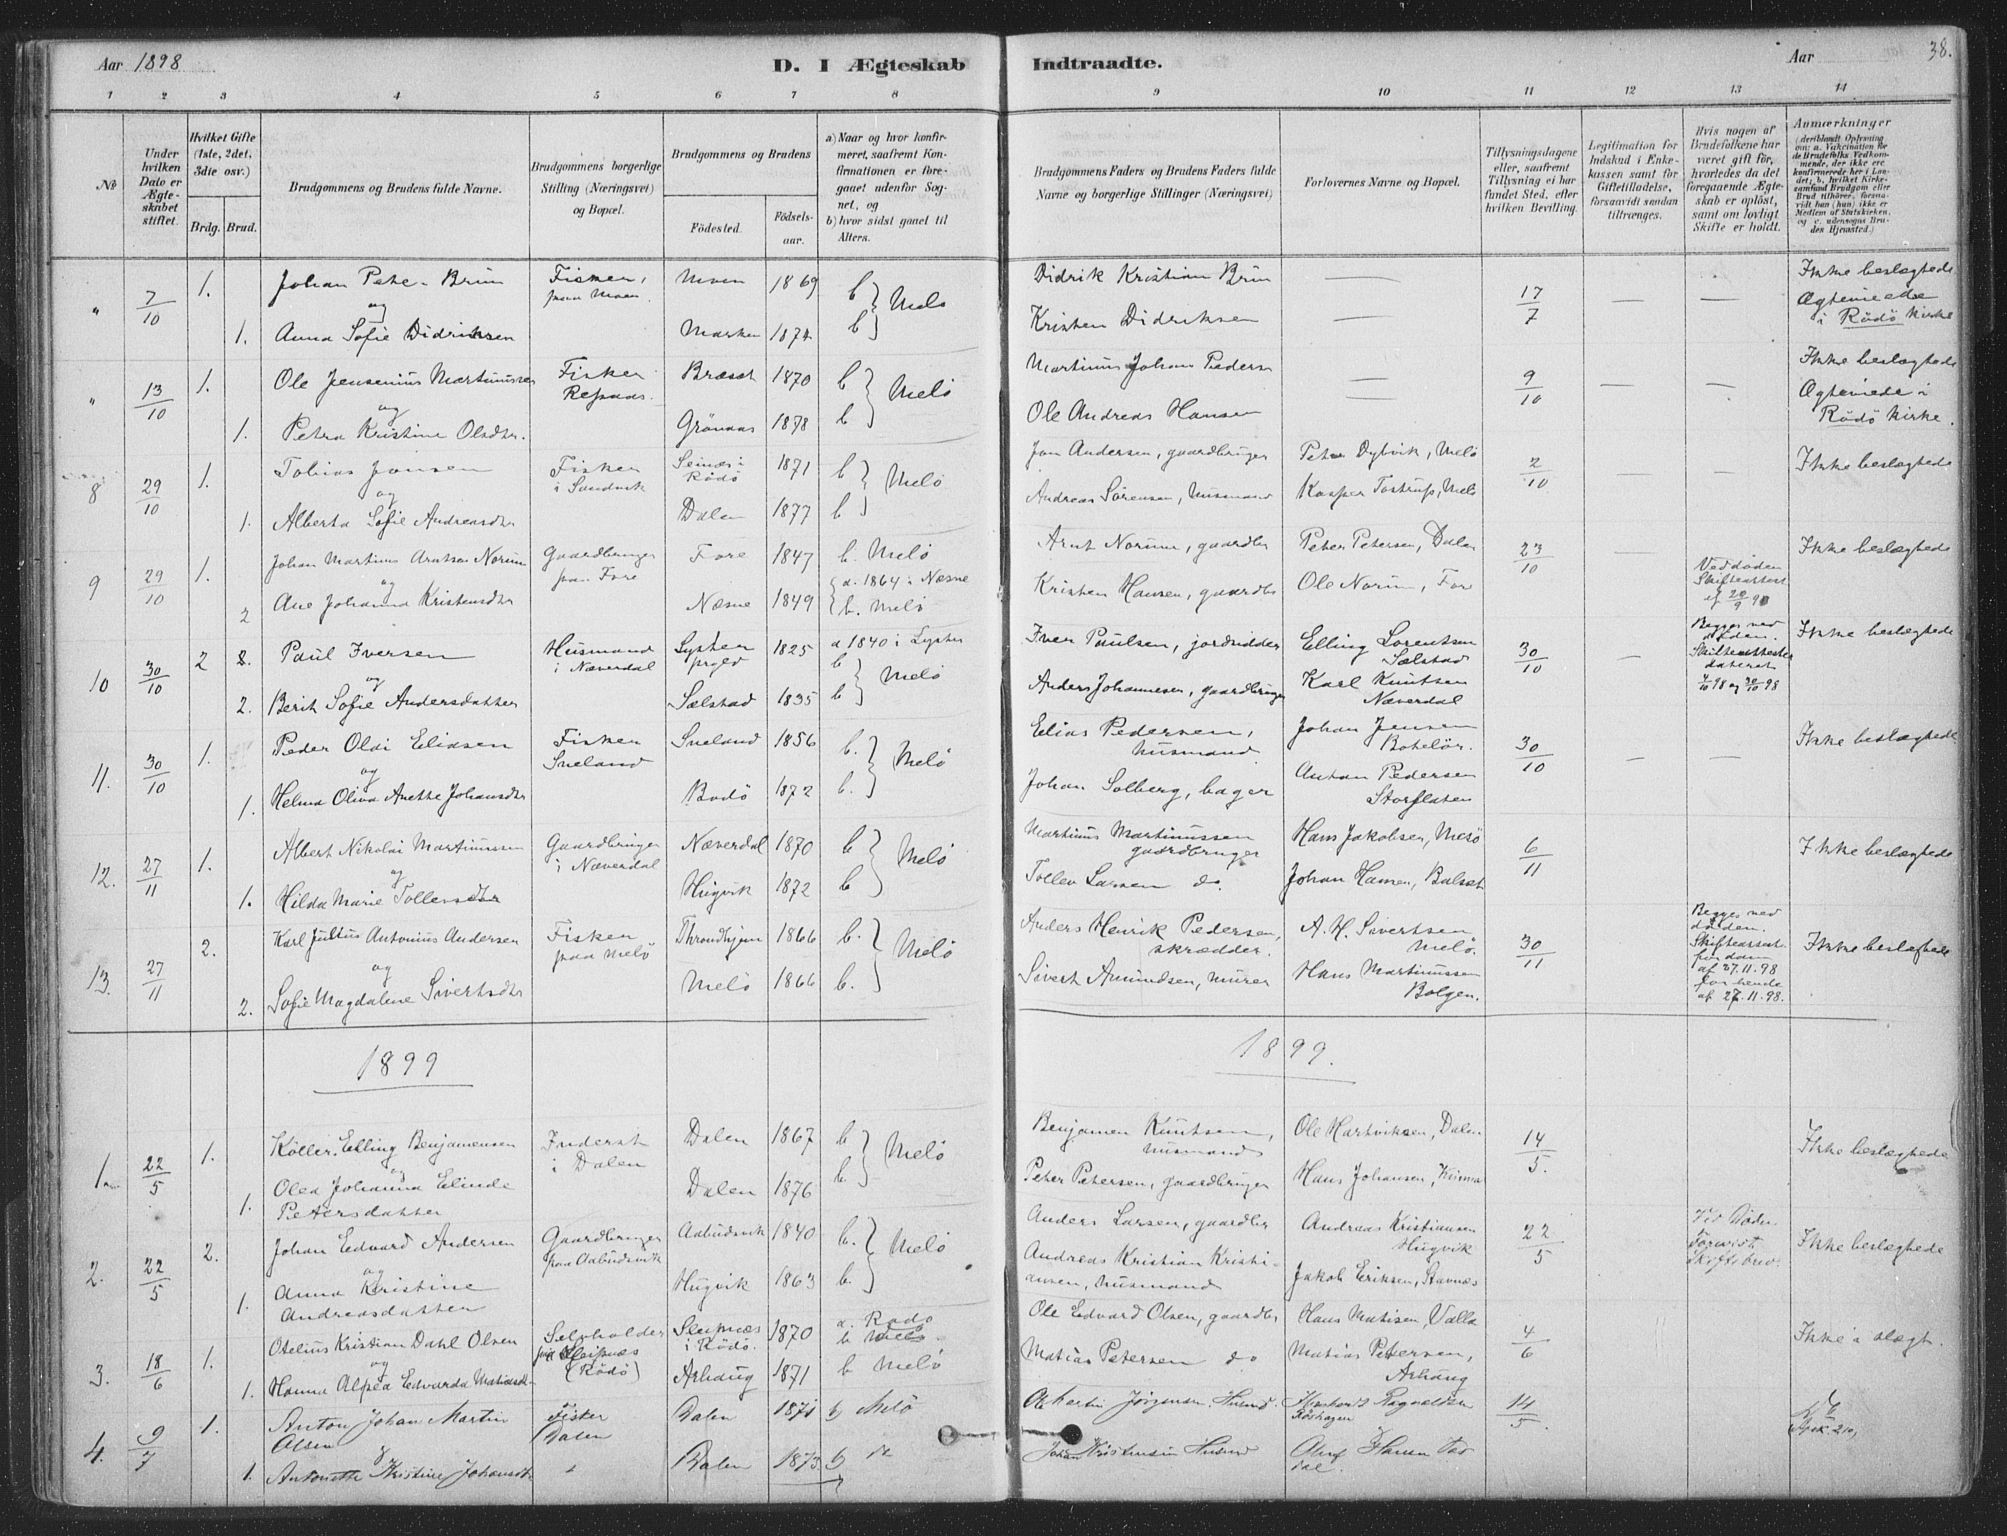 Aar 1898
D. I Ægteskab Indtraadte.
Aar
38.
1 2 3 4 5 6 7 8 9 10 11 12 13 14
No
Under hvilken Dato er Ægteskabet stiftet.
Hvilket Gifte (1ste, 2det, 3die osv.)
Brdg. Brud.
Brudgommens og Brudens fulde Navne.
Brudgommens borgerlige Stilling (Næringsvei) og Bopæl.
Brudgommens og Brudens
Fødested. Fødselsaar.
a) Naar og hvor konfirmeret, saafremt Konfirmationen er foregaaet udenfor Sognet, og
b) hvor sidst gaaet til Alters.
Brudgommens Faders og Brudens Faders fulde Navne og borgerlige Stillinger (Næringsvei)
Forlovernes Navne og Bopæl.
Tillysningsdagene eller, saafremt Tillysning ei har fundet Sted, efter hvilken Bevilling.
Legitimation for Indskud i Enkekassen samt for Giftetilladelse, forsaavidt saadan tiltrænges.
Hvis nogen af Brudefolkene har været gift før, hvorledes da det foregaaende Ægteskab er opløst, samt om lovligt Skifte er holdt.
Anmærkninger
" 7/10 1. Johan Peter Brun Fisker, Meven 1869 b Melö Didrik Kristian Brun — 17/7 — — Ikke beslægtede
og
1. Anna Sofie Didriksen Marken 1874 b Kristen Didriksen — Ægteviede i Rödö Kirke
" 13/10 1. Ole Jensenius Martinussen Fisker Repaas. Bræset 1870 b Melö Martinus Johan Peders — 9/10 — — Ikke beslægtede
og
1. Petra Kristine Olsdtr. Grönaas 1878 b Ole Andreas Hansen — Ægteviede i Rödö Kirke.
8 29/10 1. Tobias Jonsen Fisker i Sandvik Seines i Rödö 1871 b Melö Jon Andersen, gaardbruger Peter Dybvik, Melö 2/10 — — Ikke beslægtede
og
1. Alberta Sofie Andreasdtr Dalen 1877 b Andreas Sörensen, Husmand Kasper Tostrup, Melö
9 29/10 1. Johan Martinus Arntsen Norum Gaardbruger paa Fore Fore 1847 b. Melö Arnt Norum, gaardbr Peter Petersen, Dalen 23/10 — Ved döden Skifteattest af 20/9 98 Ikke beslægtede
og
2 Ane Johanna Kristensdtr Næsne 1849 a. 1864 i Næsne b. Melö Kristen Hansen, gaardbr Ole Norum, Fore
10 30/10 2 Paul Iversen Husmand i Næverdal Lyster prgld 1825 a 1840 i Lyster b Melö Iver Paulsen, jordsidder Elling Lorentsen Sælstad 30/10 — Begges ved döden. Skifteattester dateret 4/10 98 og 20/10 98 Ikke beslægtede
og
2. Berit Sofie Andersdatter Sælstad 1835 b Anders Johannesen, gaardbruger Karl Knutsen Næverdal
11. 30/10 1. Peder Olai Eliasen Fisker Sneland Sneland 1856 b. Melö Elias Pedersen, husmand Johan Jensen 30/10 — — Ikke beslægtede
og
1. Helma Oliva Anette Johansdtr Bodö 1872 b. Johan Solberg, bager Anton Pedersen Storflaten
12. 27/11 1. Albert Nikolai Martinussen Gaardbruger i Næverdal Næverdal 1870 b Melö Martinus Martinussen gaardbruger Hans Jakobsen, Mesö 6/11 Ikke beslægtede
og
1. Hilda Marie Tollevsdtr Hugvik 1872 b Tollev Larsen do. Johan Hansen, Balset
13. 27/11 2. Karl Julius Antonius Andersen Fisker paa Melö Throndhjem 1866 b. Melö Anders Henrik Pedersen, skrædder. A. H. Sivertsen Melö. 30/11 Begges ved döden. Skifteattest for ham af 27.11.98 for hende af 27.11.98. Ikke beslægtede
og
2. Sofie Magdalene Sivertsdtr Melö 1866 b. Sivert Amundsen, murer Hans Martinussen Bolgen.
1899 1899.
1. 22/5 1. Köller Elling Benjamensen Inderst i Dalen Dalen 1867 b Melö Benjamen Knutsen, husmand Ole Hartviksen, Dalen 14/5. Ikke beslægtede
og
1. Olea Johanna Elinde Petersdatter Dalen 1876 b. Peter Petersen, gaardbruger Hans Johansen,
2. 22/5 2. Johan Edvard Andersen Gaardbruger paa Aabudsvik Aabudsvik 1840 b. Melö Anders Larsen, gaardbr Andreas Kristiansen Hugvik 22/5 Ved Döden. Forevist Skiftebrev. Ikke beslægtede
og
1. Anna Kristine Andreasdatter Hugvik 1863 b. Andreas Kristian Kristiansen, husmand Jakob Eriksen, Stavnæs
3. 18/6 1. Otelius Kristian Dahl Olsen Selvholder paa Sleipnæs (Rödö) Sleipnæs i Rödö. 1870 a. Rödö b Melö. Ole Edvard Olsen, gaardbr Hans Matisen, Valla 4/6 Ikke i slægt.
og
1. Hanna Alpea Edvarda Matiasdtr Arhaug 1871 b Melö Matias Petersen do Matias Petersen, Arhaug
4. 9/7 1. Anton Johan Martin Olsen Fisker Dalen Dalen 1871 b Melö Jörgensen Husmd. 14/5
1. Antonette Kristine Johansdtr Dalen 1873 b Johan Kristensen Husmd Hansen